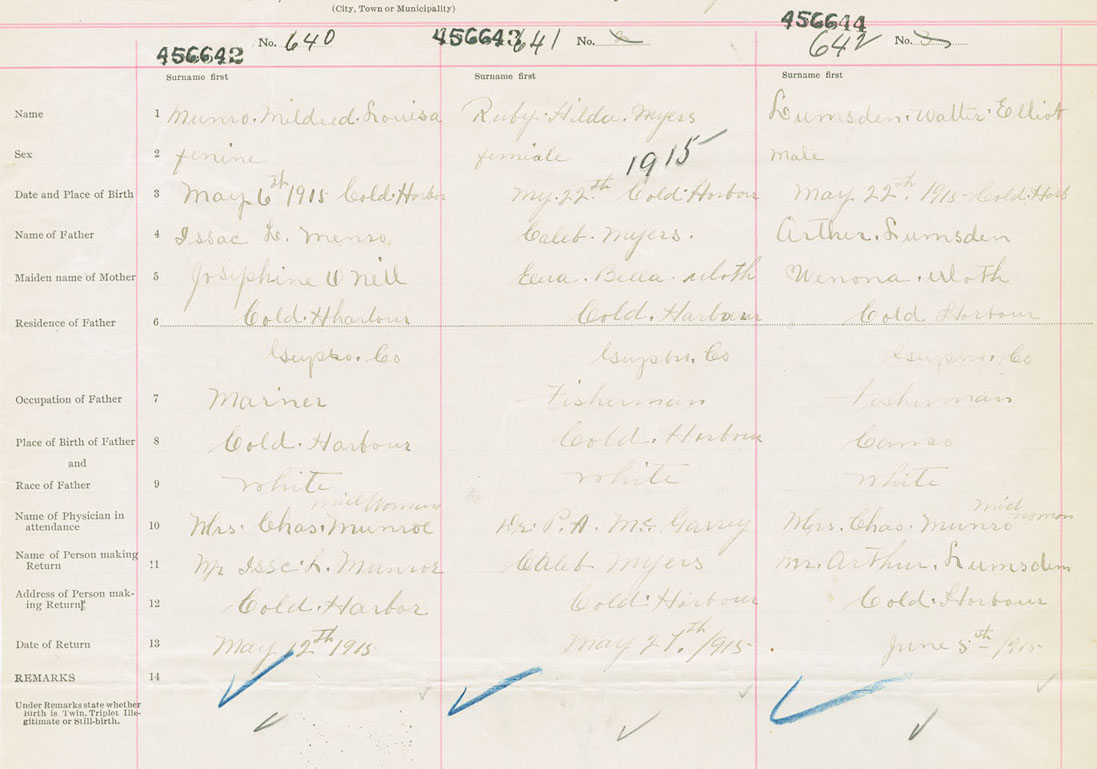 (City, Town or Municipality)
456642 No. 640 456643 641 No. 456644 642 No.
Surname first Surname first Surname first
Name 1 Munro. Mildred. Louisa Ruby. Hilda. Myers Lumsden. Walter. Elliot
Sex 2 femine femiale male
1915
Date and Place of Birth 3 May 6st 1915 Cold. Harbor My. 22th Cold Harbour May 22th. 1915 Cold. Harb
Name of Father 4 Issac L. Menro Caleb. Myers. Arther. Lumsden
Maiden name of Mother 5 Josiphine O Neil Wenona.
Cold. Hharbour Cold. Harbour Cold Harbour
Residence of Father 6
Guysbo. Co Guysbr. Co Guysbr. Co
Occupation of Father 7 Mariner Fisherman Fisherman
Place of Birth of Father 8 Cold. Harbour Cold. Harbour Canso
and
Race of Father 9 White White White
mid Woman mid woman
Name of Physician in
attendance 10 Mrs. Chas. Munroe Dr. P. A. Mc Garrey Mrs. Chas. Munro
Name of Person making
Return 11 Mr Issc. L. Munroe Caleb Myers Mr. Arthur. Lumsden
Address of Person mak-
ing Return 12 Cold. Harbor Cold. Harbour Cold. Harbour
Date of Return 13 May 12th 1915 May 27. /915 June 5th /915
REMARKS 14
Under Remarks state whether
Birth is Twin, Triplet Ille-
gitimate or Still-birth.